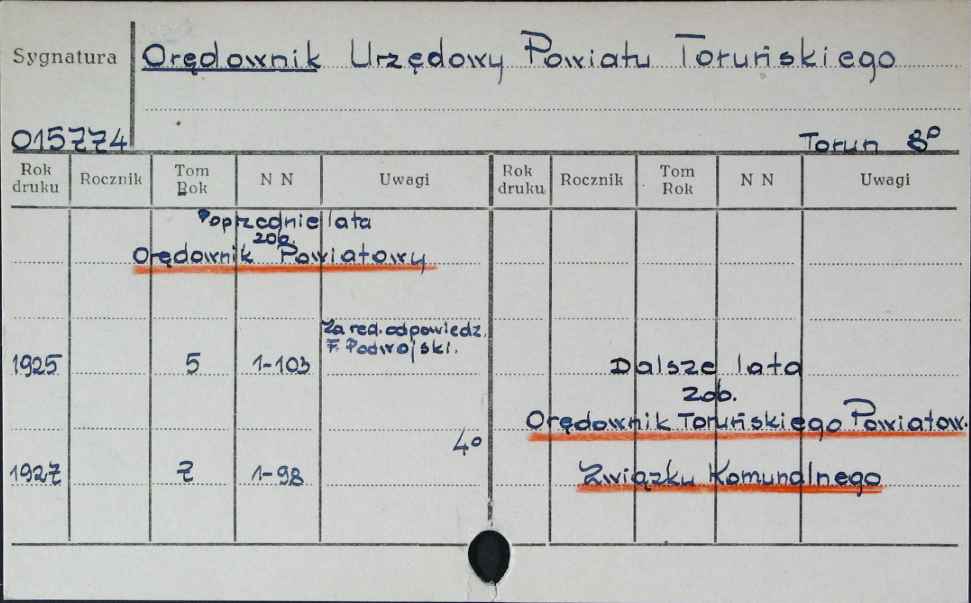 Sygnatura
Orędownik Urzędowy Powiatu Toruńskiego
015774
Toruń 8°
Rok druku Rocznik Tom Rok N N Uwagi Rok druku Rocznik Tom Rok N N Uwagi
Poprzednie lata
zob.
Orędownik Powiatowy
Za red. odpowiedz.
F. Podwojski.
1925 5 1-103
Dalsze lata
zob.
Orędownik Toruńskiego Powiatow.
4°
1927 7 1-98
Związku Komunalnego